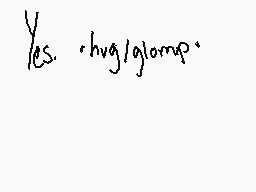 Yes. •hug/glomp•